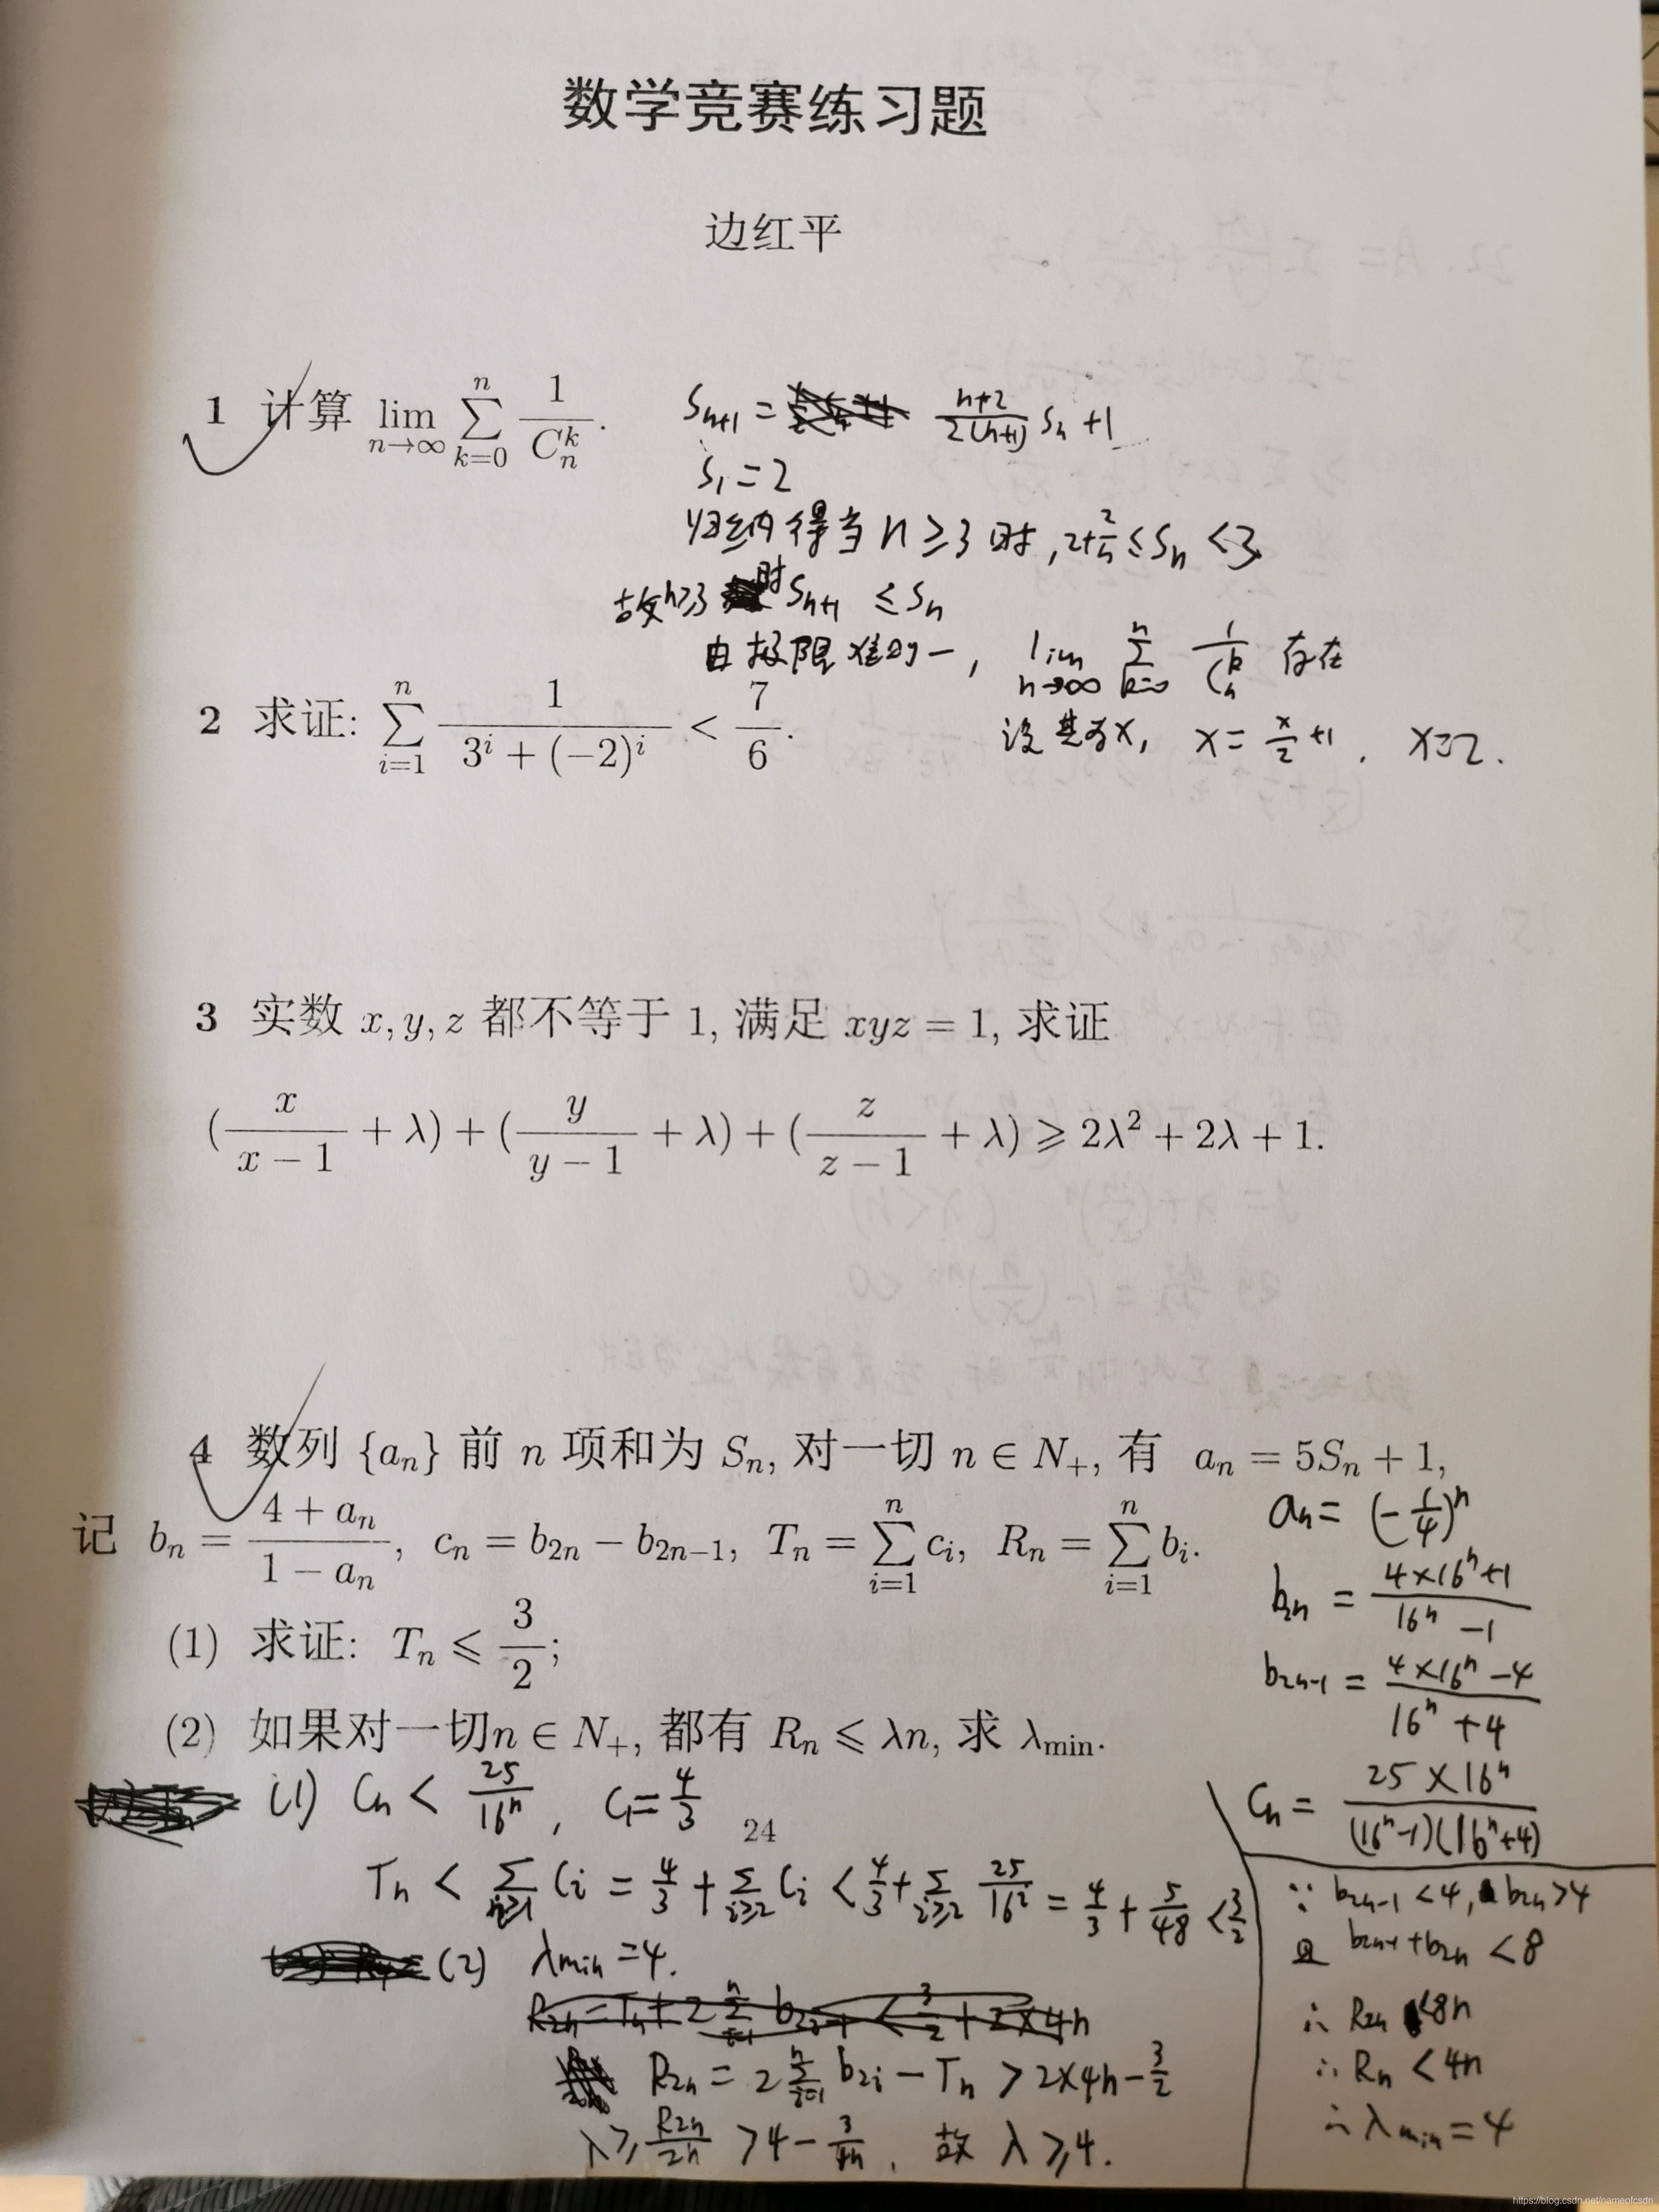 数学竞赛练习题
边红平
1 计算 lim_{n→∞} ∑_{k=0}^{n} 1/C_n^k.
S_{n+1} = (n+2)/(2(n+1)) S_n + 1
S_1 = 2
归纳得当 n ≥ 3 时, 2+2/n ≤ S_n < 3
故 n≥3 时 S_{n+1} ≤ S_n
由极限唯一, lim_{n→∞} ∑_{k=0}^{n} 1/C_n^k 存在
设其为x, x = x/2 + 1, x=2.
2 求证: ∑_{i=1}^{n} 1/(3^i + (−2)^i) < 7/6.
3 实数 x, y, z 都不等于 1, 满足 xyz = 1, 求证
(x/(x − 1) + λ) + (y/(y − 1) + λ) + (z/(z − 1) + λ) ⩾ 2λ² + 2λ + 1.
4 数列 {a_n} 前 n 项和为 S_n, 对一切 n ∈ N_+, 有 a_n = 5S_n + 1,
记 b_n = (4 + a_n)/(1 − a_n), c_n = b_{2n} − b_{2n−1}, T_n = ∑_{i=1}^{n} c_i, R_n = ∑_{i=1}^{n} b_i.
(1) 求证: T_n ⩽ 3/2;
(2) 如果对一切n ∈ N_+, 都有 R_n ⩽ λn, 求 λ_min.
a_n = (−1/4)^n
b_{2n} = (4×16^n+1)/(16^n −1)
b_{2n-1} = (4×16^n −4)/(16^n +4)
C_n = (25×16^n)/((16^n−1)(16^n+4))
(1) C_n < 25/16^n, C_1 = 4/3
24
T_n < ∑_{i≥1} C_i = 4/3 + ∑_{i≥2} C_i < 4/3 + ∑_{i≥2} 25/16^i = 4/3 + 5/48 < 3/2
(2) λ_min = 4.
R_{2n} = 2∑_{i=1}^{n} b_{2i} − T_n > 2×4n − 3/2
λ ≥ R_{2n}/2n > 4 − 3/4n, 故 λ ≥ 4.
∵ b_{2n-1} < 4, b_{2n} > 4
且 b_{2n-1} + b_{2n} < 8
∴ R_{2n} < 8n
∴ R_n < 4n
∴ λ_min = 4
https://blog.csdn.net/nameofcsdn